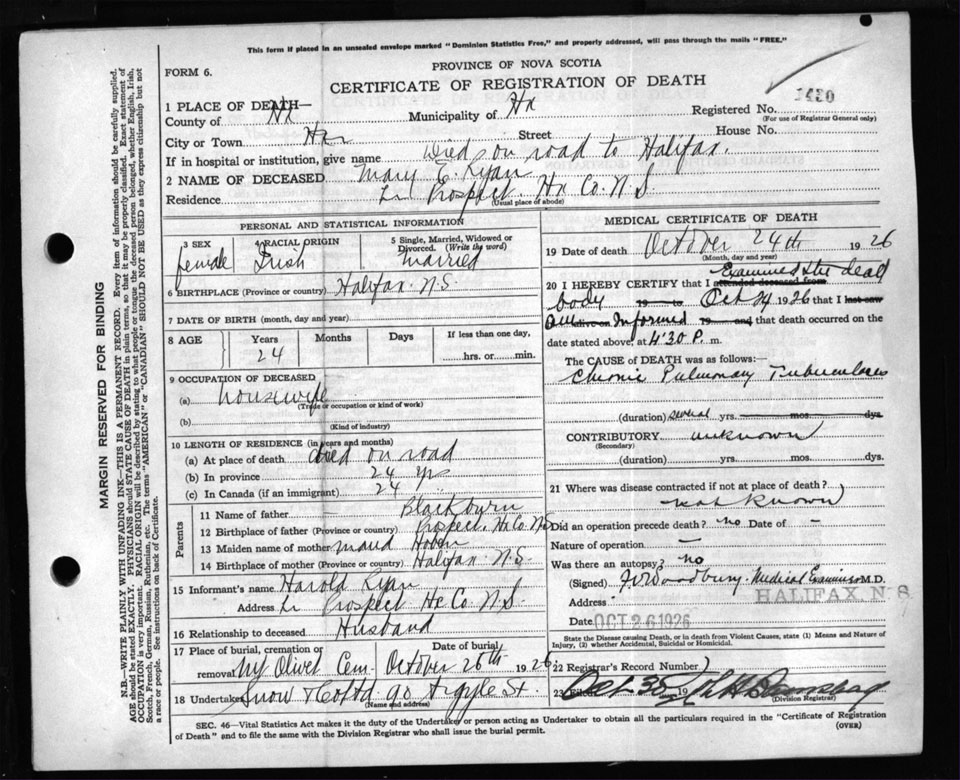 This form if placed in an unsealed envelope marked "Dominion Statistics Free," and properly addressed, will pass through the mails "FREE."
FORM 6.
PROVINCE OF NOVA SCOTIA
CERTIFICATE OF REGISTRATION OF DEATH
1 PLACE OF DEATH—
County of Hx Municipality of Hx Registered No. 1430
(For use of Registrar General only)
City or Town Street House No.
If in hospital or institution, give name Died on road to Halifax.
2 NAME OF DECEASED Mary E. Ryan
Residence Lr Prospect Hx Co. N.S.
(Usual place of abode)
PERSONAL AND STATISTICAL INFORMATION
3 SEX female
4 RACIAL ORIGIN Irish
5 Single, Married, Widowed or Divorced. (Write the word) Married
6 BIRTHPLACE (Province or country) Halifax N.S.
7 DATE OF BIRTH (month, day and year)
8 AGE Years Months Days If less than one day,
24 hrs. or min.
9 OCCUPATION OF DECEASED
(a) housewife
(Trade or occupation or kind of work)
(b)
(Kind of industry)
10 LENGTH OF RESIDENCE (in years and months)
(a) At place of death died on road
(b) In province 24 yrs
(c) In Canada (if an immigrant) 24
Parents
11 Name of father Blackburn
12 Birthplace of father (Province or country) Prospect. Hx Co. N.S
13 Maiden name of mother Maud
14 Birthplace of mother (Province or country) Halifax N.S.
15 Informant's name Harold Ryan
Address Lr Prospect Hx Co N.S.
16 Relationship to deceased Husband
17 Place of burial, cremation or removal Date of burial
Mt Olivet Cem. October 26th 1926
18 Undertaker Snow & Co Ltd 90 Argyle St.
(Name and address)
MEDICAL CERTIFICATE OF DEATH
19 Date of death October 24th 1926
(Month, day and year)
20 I HEREBY CERTIFY that I attended deceased from Examined the dead
body 19 to Oct 24 1926 that I last saw
alive on Informed 19 and that death occurred on the
date stated above, at 4.30 P. m.
The CAUSE of DEATH was as follows:
Chronic Pulmonary Tuberculosis
(duration) several yrs. mos. dys.
CONTRIBUTORY unknown
(Secondary)
(duration) yrs. mos. dys.
21 Where was disease contracted if not at place of death?
not known
Did an operation precede death? no Date of –
Nature of operation –
Was there an autopsy? no
(Signed) Woodbury. Medical Examiner M.D.
Address HALIFAX N S
Date OCT 26 1926
State the Disease causing Death, or in death from Violent Causes, state (1) Means and Nature of Injury, (2) whether Accidental, Suicidal or Homicidal.
22 Registrar's Record Number
23 Filed Oct 30 19
(Division Registrar)
SEC. 46—Vital Statistics Act makes it the duty of the Undertaker or person acting as Undertaker to obtain all the particulars required in the "Certificate of Registration
of Death" and to file the same with the Division Registrar who shall issue the burial permit.
(OVER)
MARGIN RESERVED FOR BINDING
N.B.—WRITE PLAINLY WITH UNFADING INK—THIS IS A PERMANENT RECORD. Every item of information should be carefully supplied.
AGE should be stated EXACTLY. PHYSICIANS should STATE CAUSE OF DEATH in plain terms, so that it may be properly classified. Exact statement of
OCCUPATION is very important. RACIAL ORIGIN will be described by stating to what people or tongue the deceased person belonged, whether English, Irish,
Scotch, French, German, Russian, Ruthenian, etc. The terms "AMERICAN" or "CANADIAN" SHOULD NOT BE USED as they express citizenship but not
a race or people. See instructions on back of Certificate.